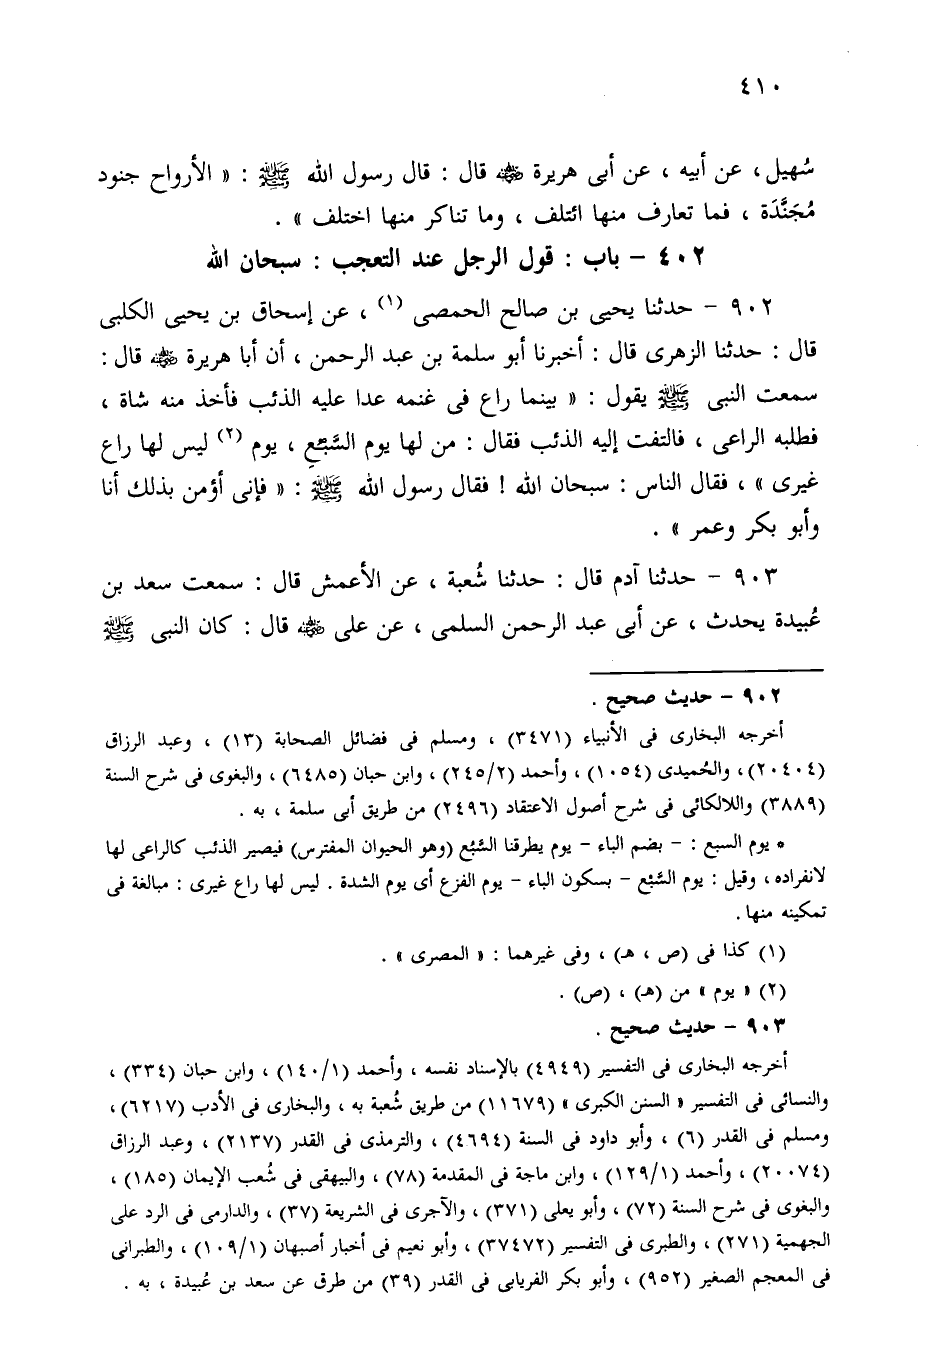 ٤١٠
سُهيل، عن أبيه ، عن أبى هريرة رضي الله عنه قال : قال رسول الله ﷺ : « الأرواح جنود
مُجَنَّدَة ، فما تعارف منها ائتلف ، وما تناكر منها اختلف » .
٤٠٢ – باب : قول الرجل عند التعجب : سبحان الله
٩٠٢ – حدثنا يحيى بن صالح الحمصى (١) ، عن إسحاق بن يحيى الكلبى
قال : حدثنا الزهرى قال : أخبرنا أبو سلمة بن عبد الرحمن ، أن أبا هريرة رضي الله عنه قال :
سمعت النبى ﷺ يقول : « بينما راع فى غنمه عدا عليه الذئب فأخذ منه شاة ،
فطلبه الراعى ، فالتفت إليه الذئب فقال : من لها يوم السَّبُعِ ، يوم (٢) ليس لها راع
غيرى » ، فقال الناس : سبحان الله ! فقال رسول الله ﷺ : « فإنى أؤمن بذلك أنا
وأبو بكر وعمر » .
٩٠٣ – حدثنا آدم قال : حدثنا شُعبة ، عن الأعمش قال : سمعت سعد بن
عُبيدة يحدث ، عن أبى عبد الرحمن السلمى ، عن على رضي الله عنه قال : كان النبى ﷺ
٩٠٢ – حديث صحيح .
أخرجه البخارى فى الأنبياء (٣٤٧١) ، ومسلم فى فضائل الصحابة (١٣) ، وعبد الرزاق
(٢٠٤٠٤)، والحُميدى (١٠٥٤) ، وأحمد (٢٤٥/٢) ، وابن حبان (٦٤٨٥) ، والبغوى فى شرح السنة
(٣٨٨٩) واللالكائى فى شرح أصول الاعتقاد (٢٤٩٦) من طريق أبى سلمة ، به .
* يوم السبع : – بضم الباء – يوم يطرقنا السَّبُع (وهو الحيوان المفترس) فيصير الذئب كالراعى لها
لانفراده ، وقيل : يوم السَّبْع – بسكون الباء – يوم الفزع أى يوم الشدة . ليس لها راع غيرى : مبالغة فى
تمكينه منها .
(١) كذا فى (ص ، هـ) ، وفى غيرهما : « المصرى » .
(٢) « يوم » من (هـ) ، (ص) .
٩٠٣ – حديث صحيح .
أخرجه البخارى فى التفسير (٤٩٤٩) بالإسناد نفسه ، وأحمد (١٤٠/١) ، وابن حبان (٣٣٤) ،
والنسائى فى التفسير « السنن الكبرى » (١١٦٧٩) من طريق شُعبة به ، والبخارى فى الأدب (٦٢١٧) ،
ومسلم فى القدر (٦) ، وأبو داود فى السنة (٤٦٩٤) ، والترمذى فى القدر (٢١٣٧) ، وعبد الرزاق
(٢٠٠٧٤) ، وأحمد (١٢٩/١) ، وابن ماجة فى المقدمة (٧٨) ، والبيهقى فى شُعب الإيمان (١٨٥) ،
والبغوى فى شرح السنة (٧٢) ، وأبو يعلى (٣٧١) ، والآجرى فى الشريعة (٣٧) ، والدارمى فى الرد على
الجهمية (٢٧١) ، والطبرى فى التفسير (٣٧٤٧٢) ، وأبو نعيم فى أخبار أصبهان (١٠٩/١) ، والطبرانى
فى المعجم الصغير (٩٥٢) ، وأبو بكر الفريابى فى القدر (٣٩) من طرق عن سعد بن عُبيدة ، به .